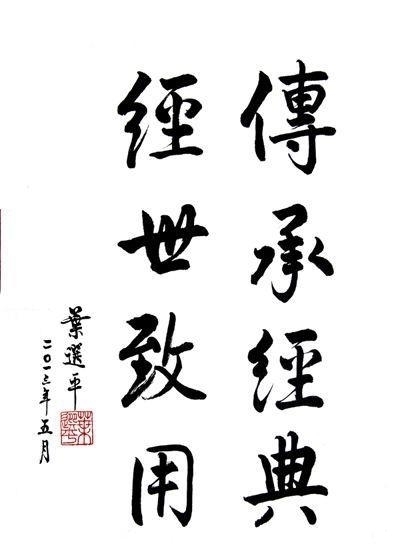 傳承經典
經世致用
葉選平
二〇一三年五月
葉選平